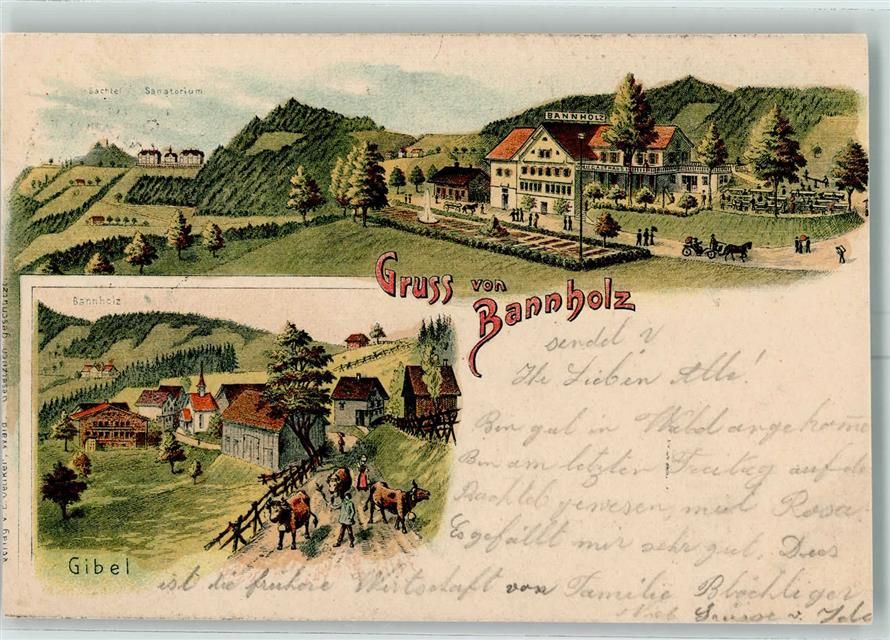 Bachtel Sanatorium
BANNHOLZ
Gruss von
Bannholz
Bannholz
Gibel
sendet
Ihr Lieben Alle!
Bin gut in Wald angekommen
Bin am letzten Freitag auf de
Bachtel gewesen mit Rosa
Es gefällt mir sehr gut. Dies
ist die frühere Wirtschaft von Familie Blöchliger
Grüsse v. Ida